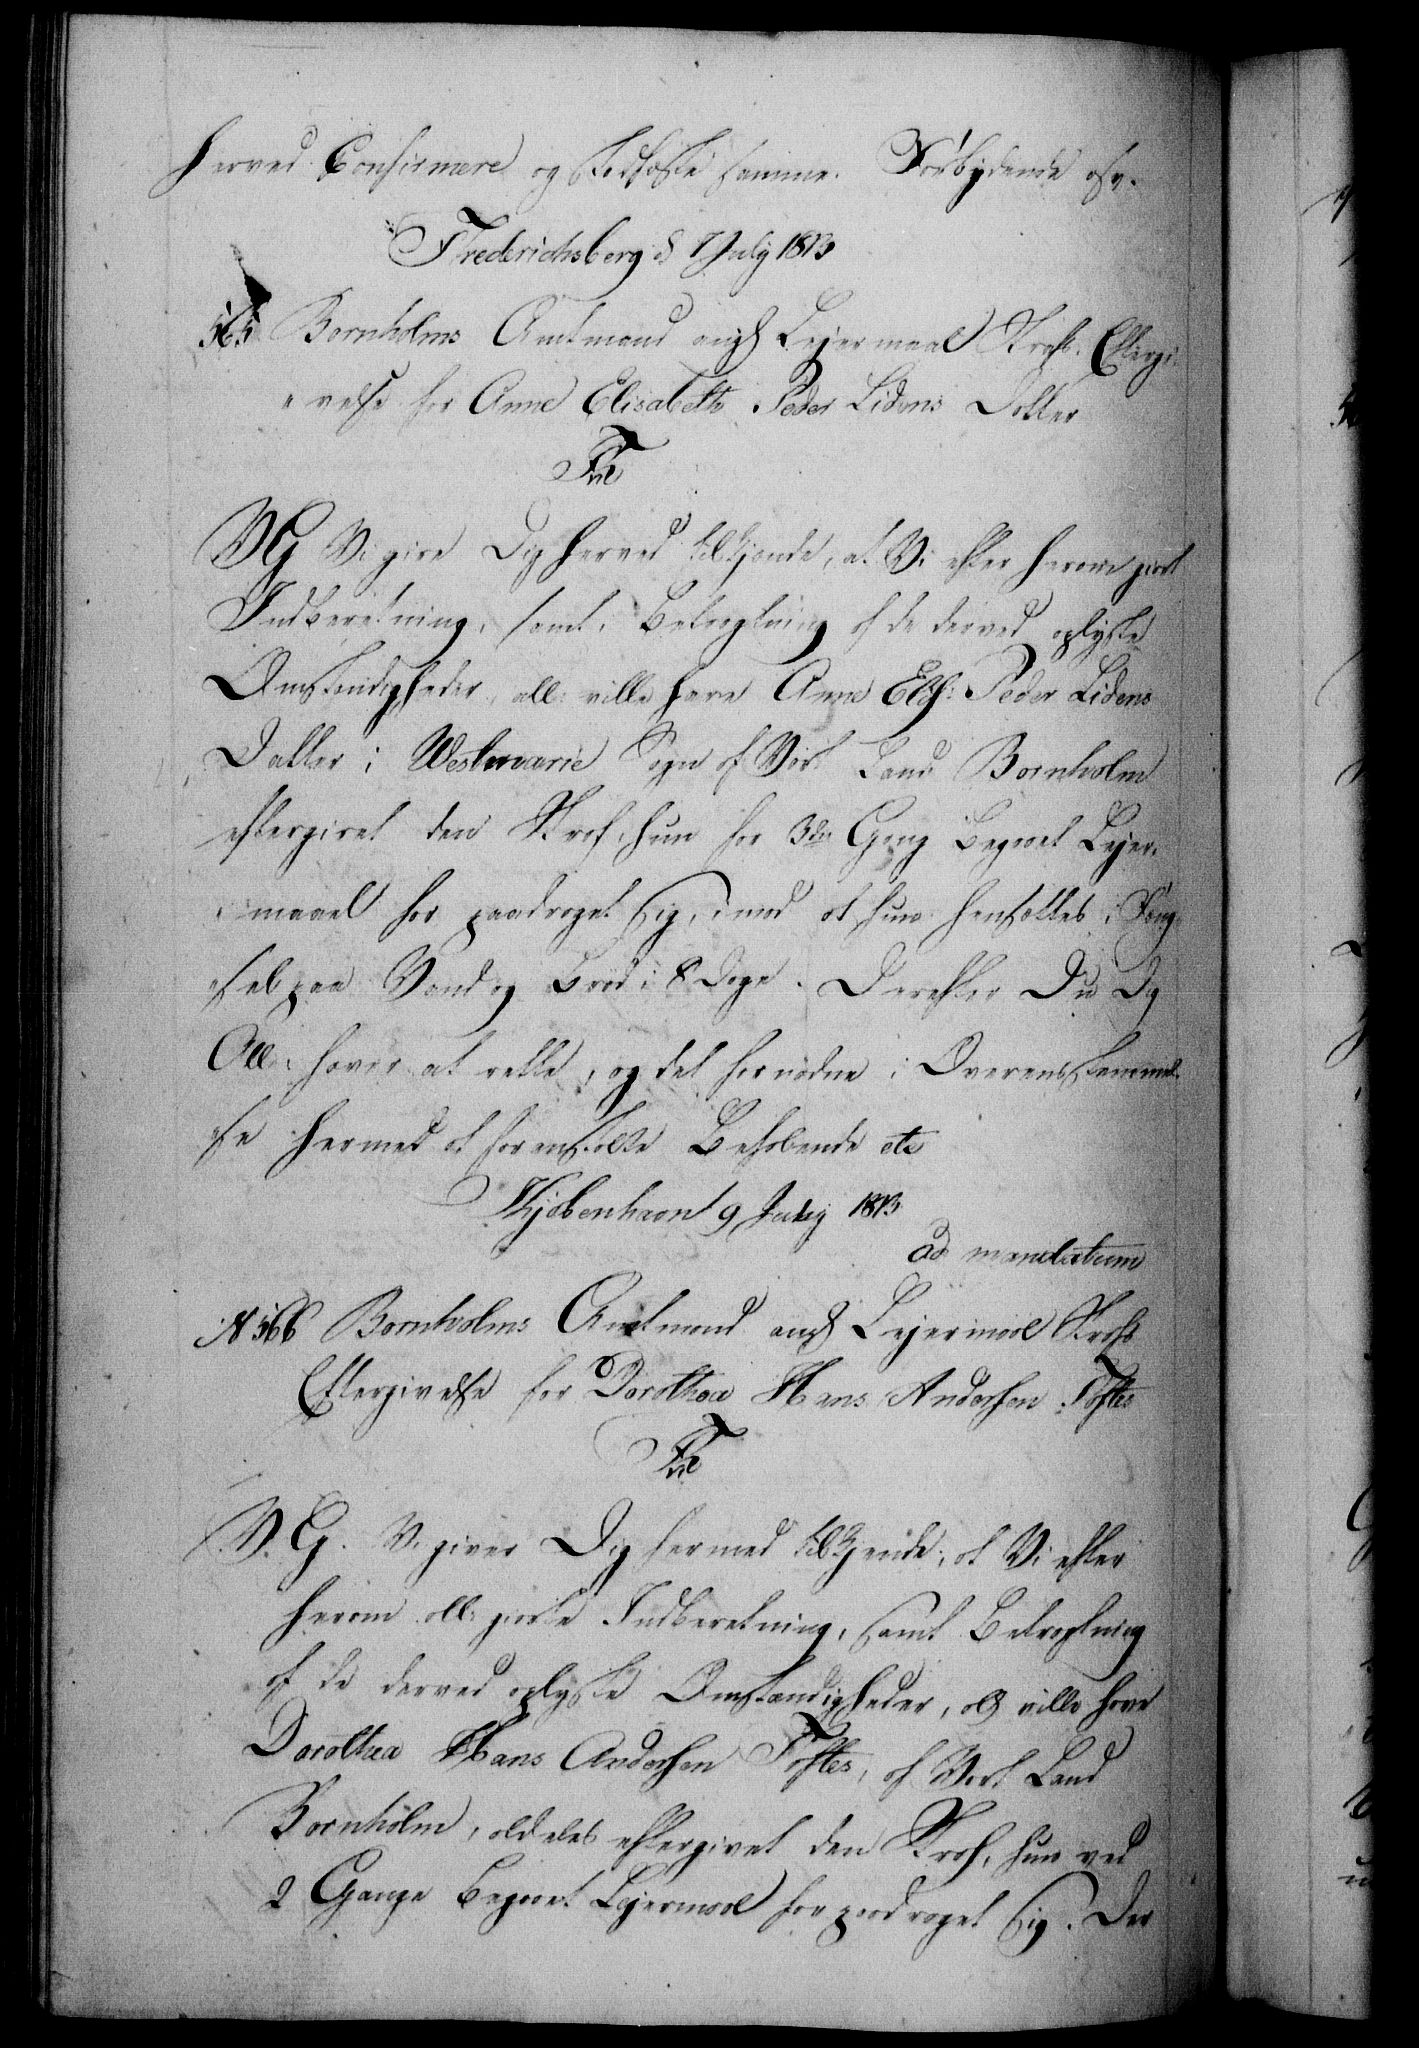 herved Confirmere og stadfæste samme. Forbydende osv.
Frederichsberg d 7 July 1813
565 Bornholms Amtmand angd Lejermaal Strafs Eftergi-
velse for Anne Elisabeth Peder Lidens Datter
F
VG Vi give Dig herved tilkjende, at Vi efter herom giort
Indberetning, samt i Betragtning af de derved oplyste
Omstændigheder, all: ville have Anne Elis: Peder Lidens
Datter i Westmarie Sogn af Vort Land Bornholm
eftergivet den Straf, hun for 3die Gang begaaet Lejer-
maal har paadraget sig, imod at hun hensættes i Fæng-
sel paa Vand og Brød i 8 Dage. Derefter Du Dig
All: haver at rette, og det fornødne i Overensstemmel-
se hermed at foranstalte Befalende etc
Kjøbenhavn 9 July 1813
ad mandatum
N 566 Bornholms Amtmand angd Lejermaal Strafs
Eftergivelse for Dorothea Hans Andersen Toftes
F
V. G. Vi giver Dig hermed tilkjende, at Vi efter
herom all: giorte Indberetning, samt Betragtning
af de derved oplyste Omstændigheder, all ville have
Dorothea Hans Andersen Toftes, af Vort Land
Bornholm, aldeles eftergivet den Straf, hun ved
2 Gange begaaet Lejermaal har paadraget sig. Der